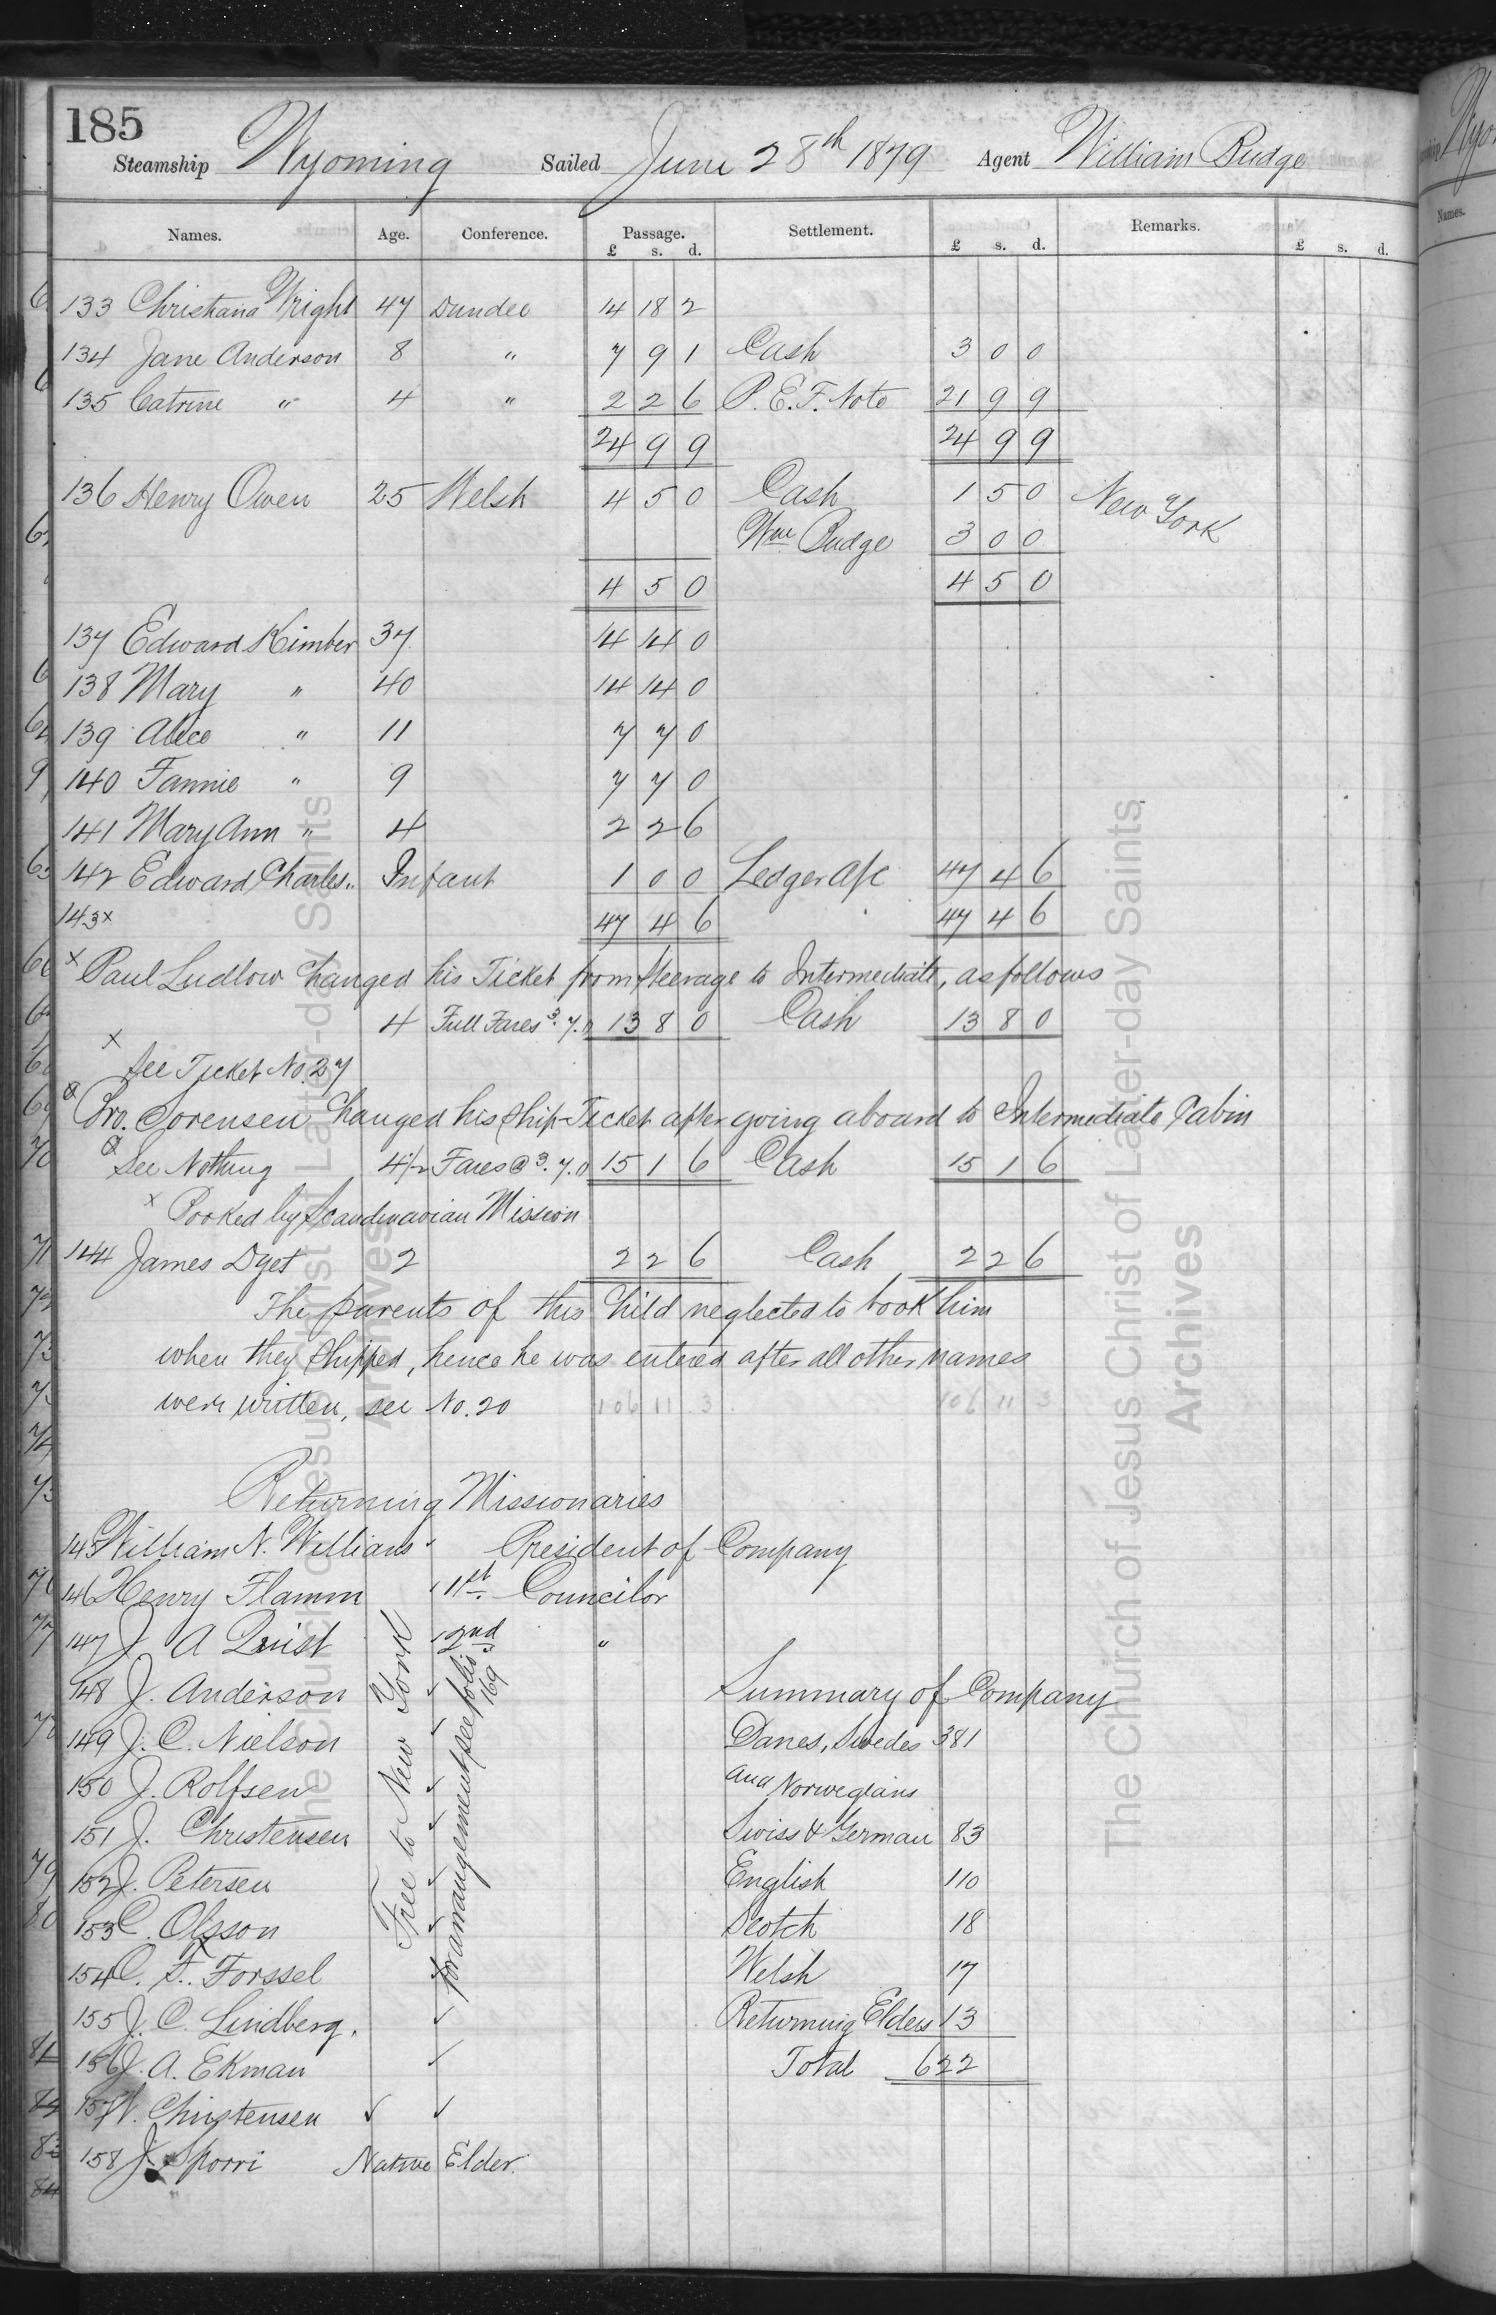 185
Steamship Wyoming Sailed June 28th 1879 Agent William Budge
Names. Age. Conference. Passage. Settlement. Remarks.
£ s. d. £ s. d. £ s. d.
133 Christiana Wright 47 Dundee 14 18 2
134 Jane Anderson 8 " 7 9 1 Cash 3 0 0
135 Catrine " 4 " 2 2 6 P.E.F. Note 21 9 9
24 9 9 24 9 9
136 Henry Owen 25 Welsh 4 5 0 Cash 1 5 0 New York
Wm Budge 3 0 0
4 5 0 4 5 0
137 Edward Kimber 37 14 14 0
138 Mary " 40 14 14 0
139 Alice " 11 7 7 0
140 Fannie " 9 7 7 0
141 Mary Ann " 4 2 2 6
142 Edward Charles " Infant 1 0 0 Ledger a/c 47 4 6
143x 47 4 6 47 4 6
x Paul Ludlow changed his Ticket from Steerage to Intermediate, as follows
4 Full Fares 3.7.0 13 8 0 Cash 13 8 0
x See Ticket No. 27
Bro. Sorensen changed his Ship-Ticket after going aboard to Intermediate Cabin
See Nothing 4½ Fares @ 3.7.0 15 1 6 Cash 15 1 6
x Booked by Scandinavian Mission
144 James Dyet 2 2 2 6 Cash 2 2 6
The parents of this child neglected to book him
when they shipped, hence he was entered after all other names
were written, see No. 20
106 11 3 106 11 3
Returning Missionaries
145 William N. Williams President of Company
146 Henry Flamm 1st. Councilor
147 J. A Quist 2nd "
148 J. Anderson
149 J. C. Nielson
150 J. Rolfsen
151 J. Christensen
152 J. Petersen
153 C. Olsson
154 C. F. Forssel
155 J. C. Lindberg.
156 J. A. Ekman
157 W. Christensen
158 J. Sporri Native Elder.
Free to New York
for arrangement see folio 169
Summary of Company
Danes, Swedes 381
and Norwegians
Swiss & German 83
English 110
Scotch 18
Welsh 17
Returning Elders 13
Total 622
The Church of Jesus Christ of Latter-day Saints
Archives
The Church of Jesus Christ of Latter-day Saints
Archives